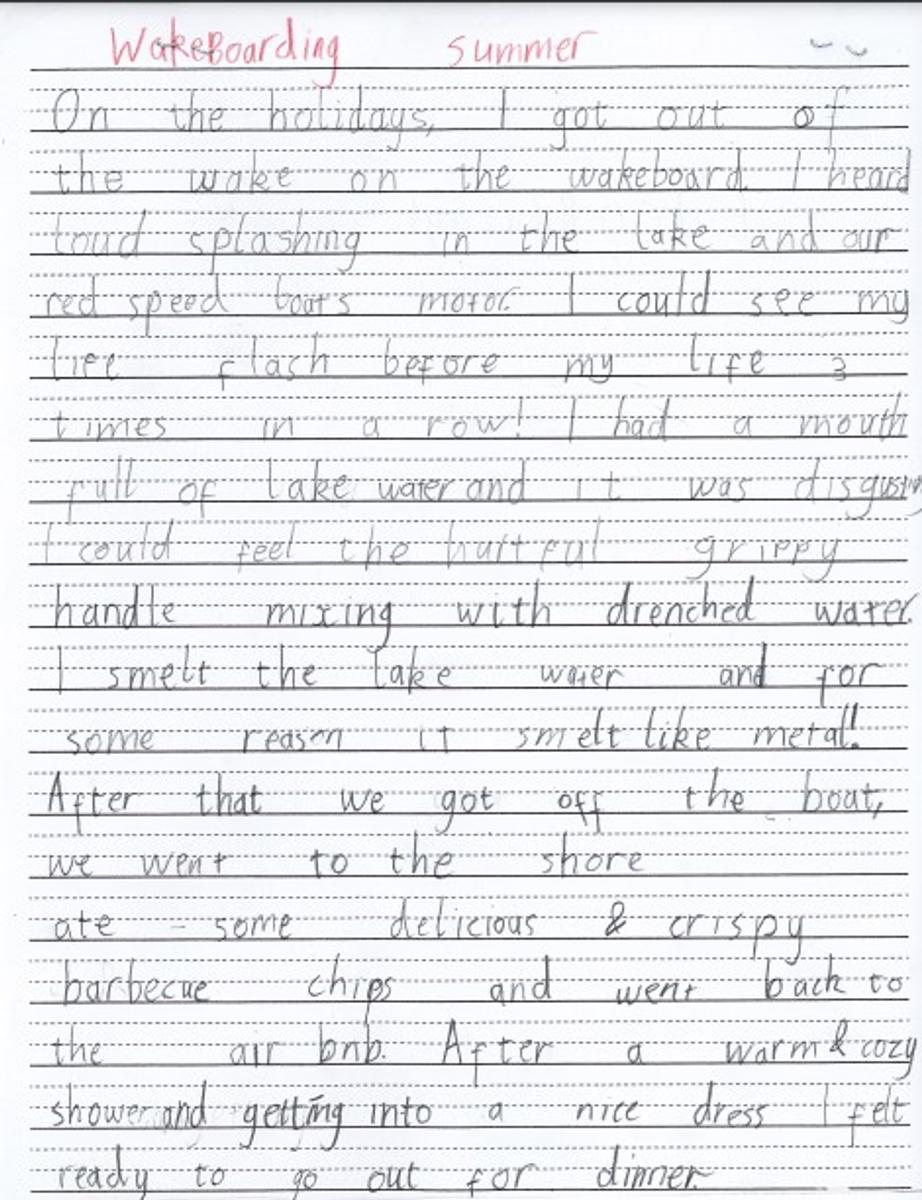 WakeBoarding summer
On the holidays, I got out of
the wake on the wakeboard I heard
loud splashing in the lake and our
red speed boats motor. I could see my
life flash before my life 3
times in a row! I had a mouth
full of lake water and it was disgusting
I could feel the hurtful grippy
handle mixing with drenched water.
I smelt the lake water and for
some reason it smelt like metal!
After that we got off the boat,
we went to the shore
ate - some delicious & crispy
barbecue chips and went back to
the air bnb. After a warm & cozy
shower and getting into a nice dress I felt
ready to go out for dinner.